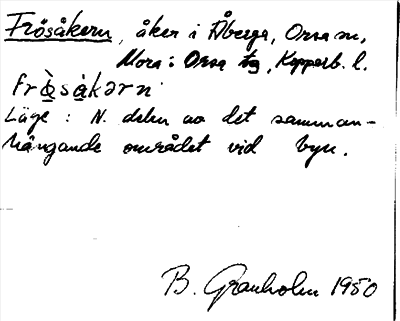 Frösåkern, åker i Åberga, Orsa sn,
Mora o. Orsa tg, Kopparb. l.
frò̤sà̤kərn
Läge : N. delen av det samman-
hängande området vid byn.
B. Granholm 1950